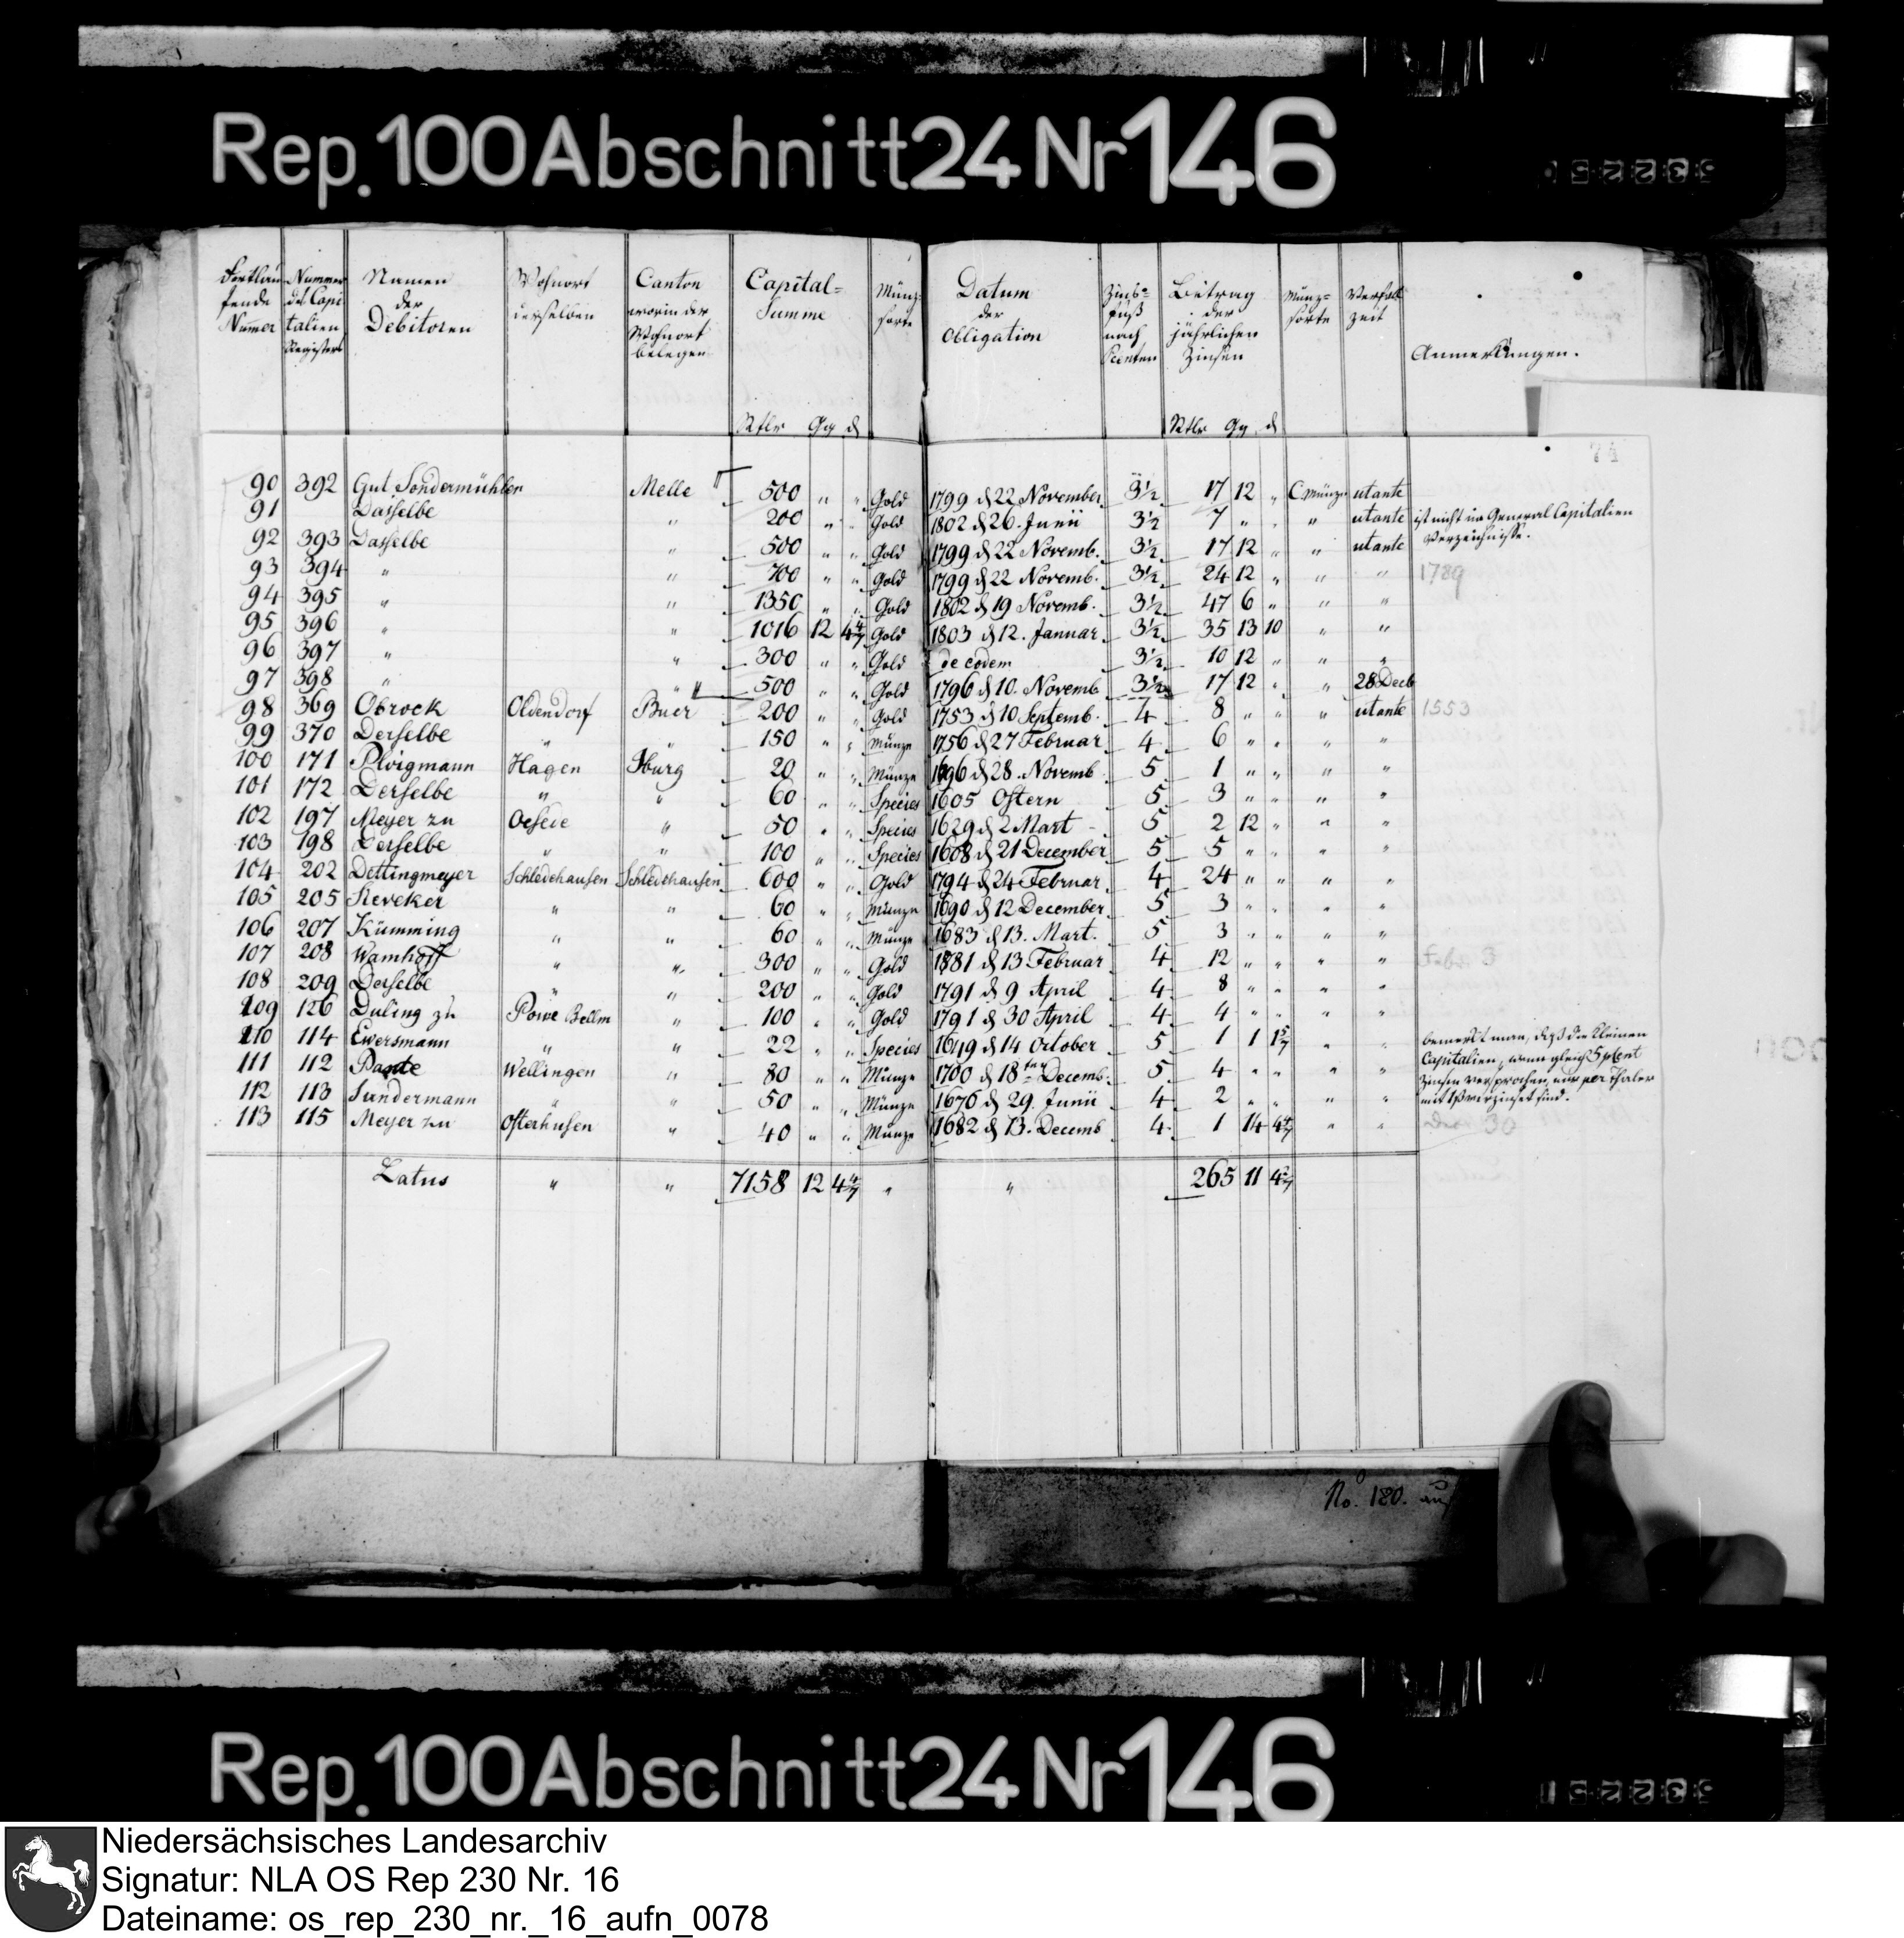 Rep. 100 Abschnitt 24 Nr 146
Fortlaufende Nummer | Nummer des Capitalien Registers | Namen der Debitoren | Wohnort derselben | Canton worin der Wohnort belegen | Capital-Summe | Münzsorte | Datum der Obligation | Zinsfuß nach Procenten | Betrag der jährlichen Zinsen | Münzsorte | Verfallzeit | Anmerkungen.
Rtlr Gg d | Rtlr Gg d
74
90 392 Gut Sondermühlen Melle 500 " " Gold 1799 d 22 November 3½ 17 12 " C Münze utante
91 Dasselbe " 200 " " Gold 1802 d 26. Junii 3½ 7 " " " utante ist nicht im General Capitalien
Verzeichnisse.
92 393 Dasselbe " 500 " " Gold 1799 d 22 Novemb. 3½ 17 12 " " utante
93 394 " " 700 " " Gold 1799 d 22 Novemb. 3½ 24 12 " " " 1789
94 395 " " 1350 " " Gold 1802 d 19 Novemb. 3½ 47 6 " " "
95 396 " " 1016 12 4 4/7 Gold 1803 d 12. Januar 3½ 35 13 10 " "
96 397 " " 300 " " Gold de eodem 3½ 10 12 " " "
97 398 " " 500 " " Gold 1796 d 10. Novemb 3½ 17 12 " " 28 Decb
98 369 Obrock Oldendorf Buer 200 " " Gold 1753 d 10 Septemb. 4 8 " " " utante 1553
99 370 Derselbe " " 150 " " Münze 1756 d 27 Februar 4 6 " " " "
100 171 Ploigmann Hagen Iburg 20 " " Münze 1696 d 28. Novemb 5 1 " " " "
101 172 Derselbe " " 60 " " Species 1605 Ostern 5 3 " " " "
102 197 Meyer zu Oesede " 50 " " Species 1629 d 2 Mart - 5 2 12 " " "
103 198 Derselbe " " 100 " " Species 1608 d 21 December 5 5 " " " "
104 202 Dettingmeyer Schledehausen Schledehausen 600 " " Gold 1794 d 24 Februar 4 24 " " " "
105 205 Steveker " " 60 " " Münze 1690 d 12 December 5 3 " " " "
106 207 Kümming " " 60 " " Münze 1683 d 13. Mart. 5 3 " " " "
107 208 Wamhoff " " 300 " " Gold 1781 d 13 Februar 4 12 " " " "
108 209 Derselbe " " 200 " " Gold 1791 d 9 April 4 8 " " " "
109 126 Duling zu Powe Bellm " 100 " " Gold 1791 d 30 April 4 4 " " " "
110 114 Ewersmann " " 22 " " Species 1649 d 14 October 5 1 1 1 5/7 " " bemerkt man, daß die kleinen
111 112 Pante Wellingen " 80 " " Münze 1700 d 18ten Decemb. 5 4 " " " " Capitalien, wenn gleich 5 pCent
Zinsen versprochen, nur per Thaler
112 113 Sundermann " " 50 " " Münze 1676 d 29. Junii 4 2 " " " " mit 1ß verzinset sind.
113 115 Meyer zu Osterhusen " 40 " " Münze 1682 d 13. Decemb 4 1 14 4 4/7 " "
Latus " " 7158 12 4 4/7 " " 265 11 4 2/7
No. 180.
Rep. 100 Abschnitt 24 Nr 146
Niedersächsisches Landesarchiv
Signatur: NLA OS Rep 230 Nr. 16
Dateiname: os_rep_230_nr._16_aufn_0078